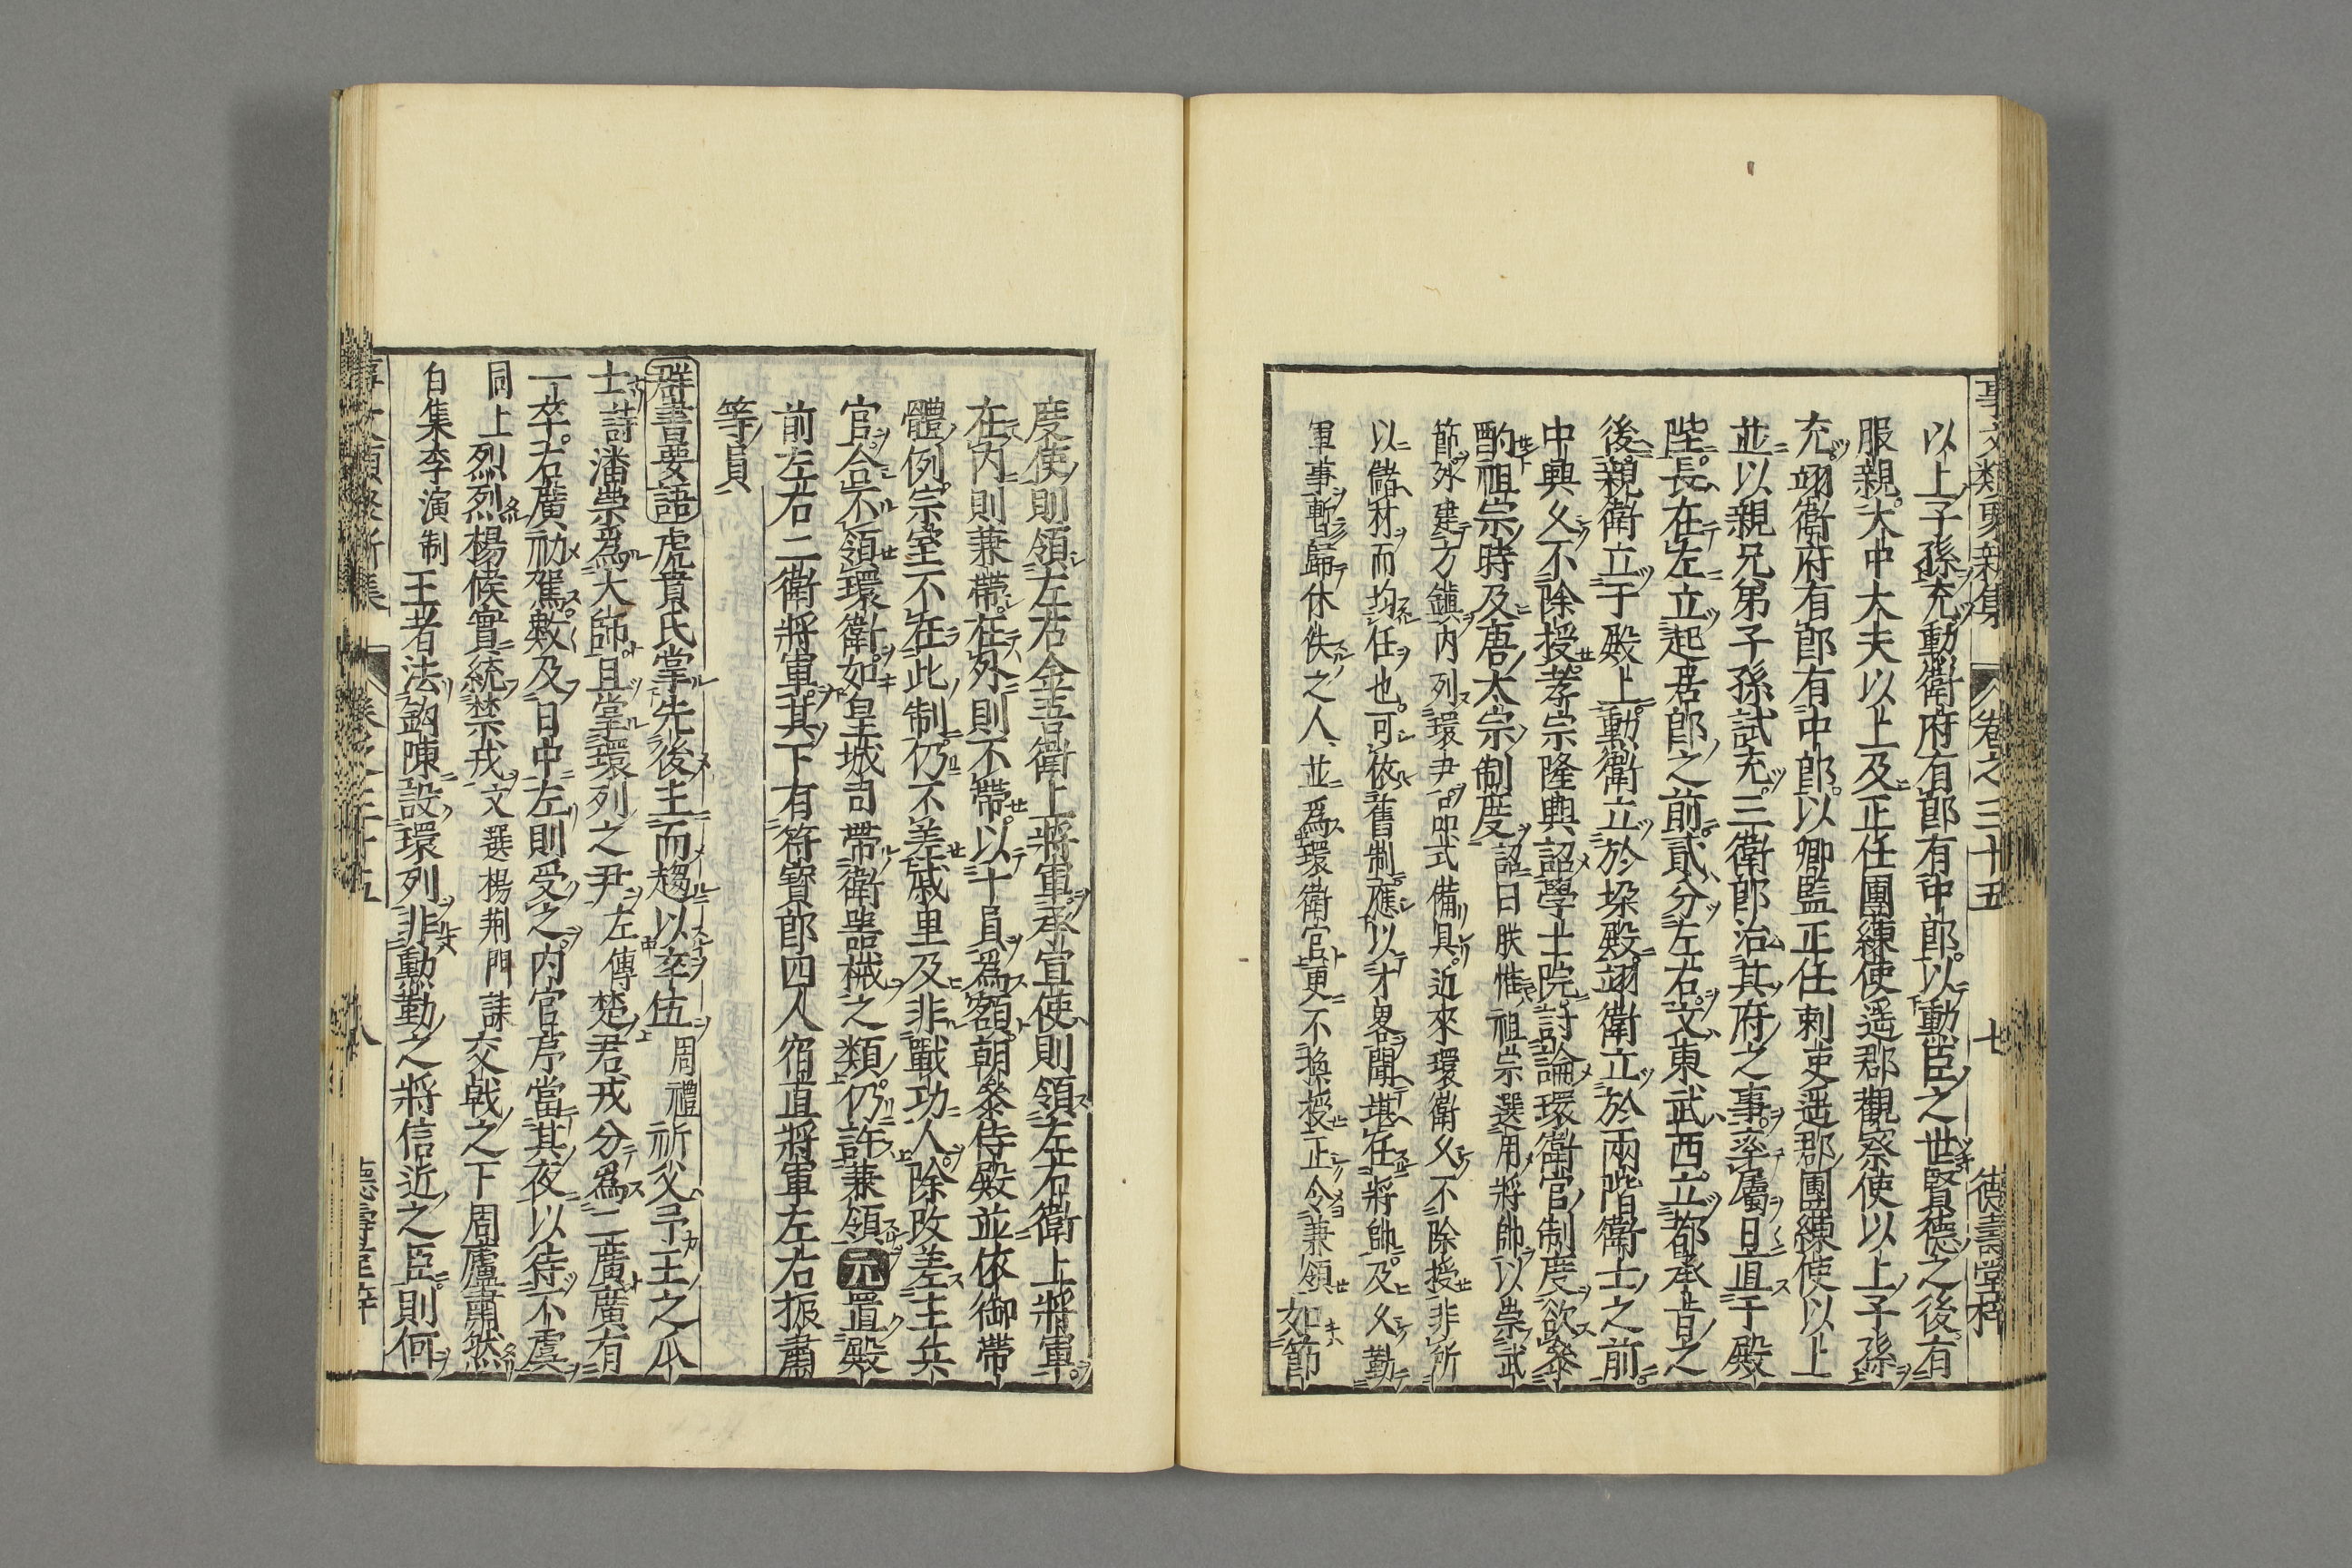 事文類聚新集 卷之三十五 七 德壽堂梓
以上子孫充勳衛府有郎有中郎以勳臣之世賢德之後有
服親大中大夫以上及正任團練使遥郡觀察使以上子孫
充翊衛府有郎有中郎以卿監正任刺吏遥郡團練使以上
並以親兄弟子孫試充三衛郎治其府之事率屬日直于殿
陛長在左立起居郎之前貳分左右文東武西立都承旨之
後親衛立于殿上勳衛立於垜殿翊衛立於兩階衛士之前
中興乆不除授孝宗隆興詔學士院討論環衛官制度欲參
酌祖宗時及唐太宗制度詔曰朕惟祖宗選用將帥以崇武
節外建方鎮内列環尹品式備具近來環衛乆不除授非所
以儲材而均任也可依舊制應以才畧聞堪任將帥及乆勤
軍事暫歸休佚之人並爲環衛官更不換授止令兼領如節
度使則領左右金吾衛上將軍承宣使則領左右衛上將軍
在内則兼帶在外則不帶以十員爲額朝參侍殿並依御帶
體例宗室不在此制仍不差戚里及非戰功人除攺差主兵
官合不領環衛如皇城司帶衛噐械之類仍許兼領元置殿
前左右二衛將軍其下有符寶郎四人宿直將軍左右振肅
等員
群書要語虎賁氏掌先後王而趨以卒伍周禮祈父予王之爪
士詩潘崇爲大師且掌環列之尹左傳楚君戎分爲二廣廣有
一卒右廣初駕數及日中左則受之内官序當其夜以待不虞
同上烈烈楊候實統禁戎文選楊荆門誄交戟之下周廬肅然
白集李演制王者法鈎陳設環列非勲勤之將信近之臣則何
事文類聚新集 卷之三十五 八 德壽堂梓